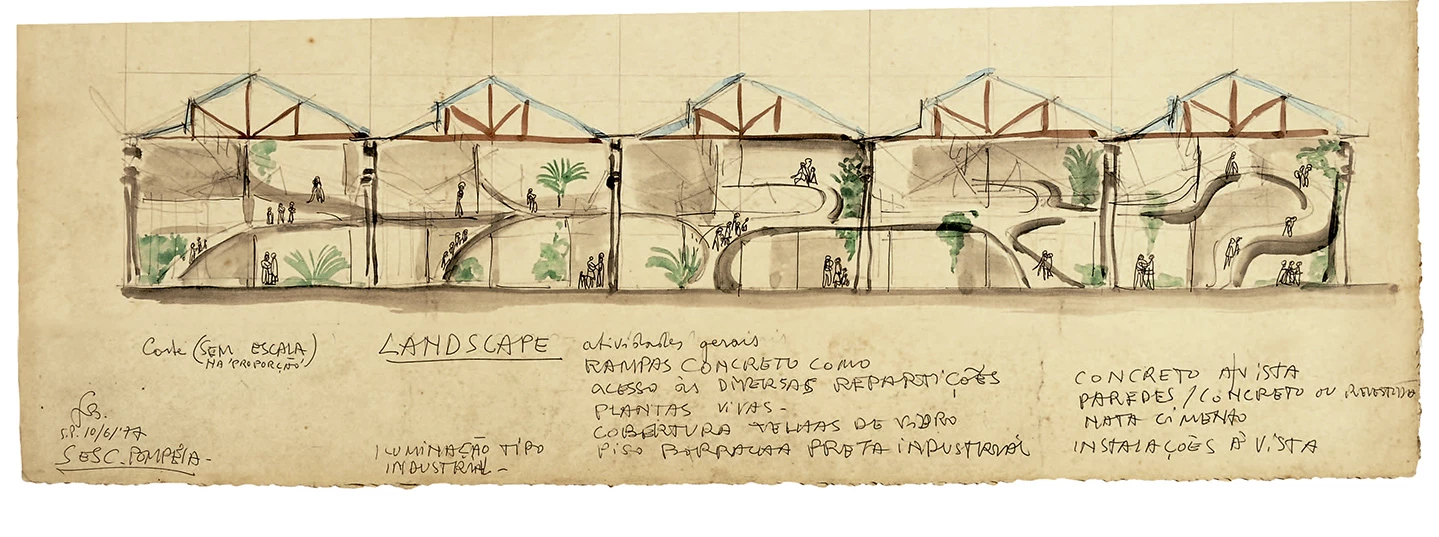 Corte (SEM ESCALA)
NA PROPORÇÃO
LB.
S.P. 10/6/77
SESC. POMPÉIA-
LANDSCAPE
ILUMINAÇÃO TIPO
INDUSTRIAL-
atividades gerais
RAMPAS CONCRETO COMO
ACESSO ÀS DIVERSAS REPARTIÇÕES
PLANTAS VIVAS-
COBERTURA TELHAS DE VIDRO
PISO BORRACHA PRETA INDUSTRIAL
CONCRETO À VISTA
PAREDES / CONCRETO OU REVESTIDO
NATA CIMENTO
INSTALAÇÕES À VISTA